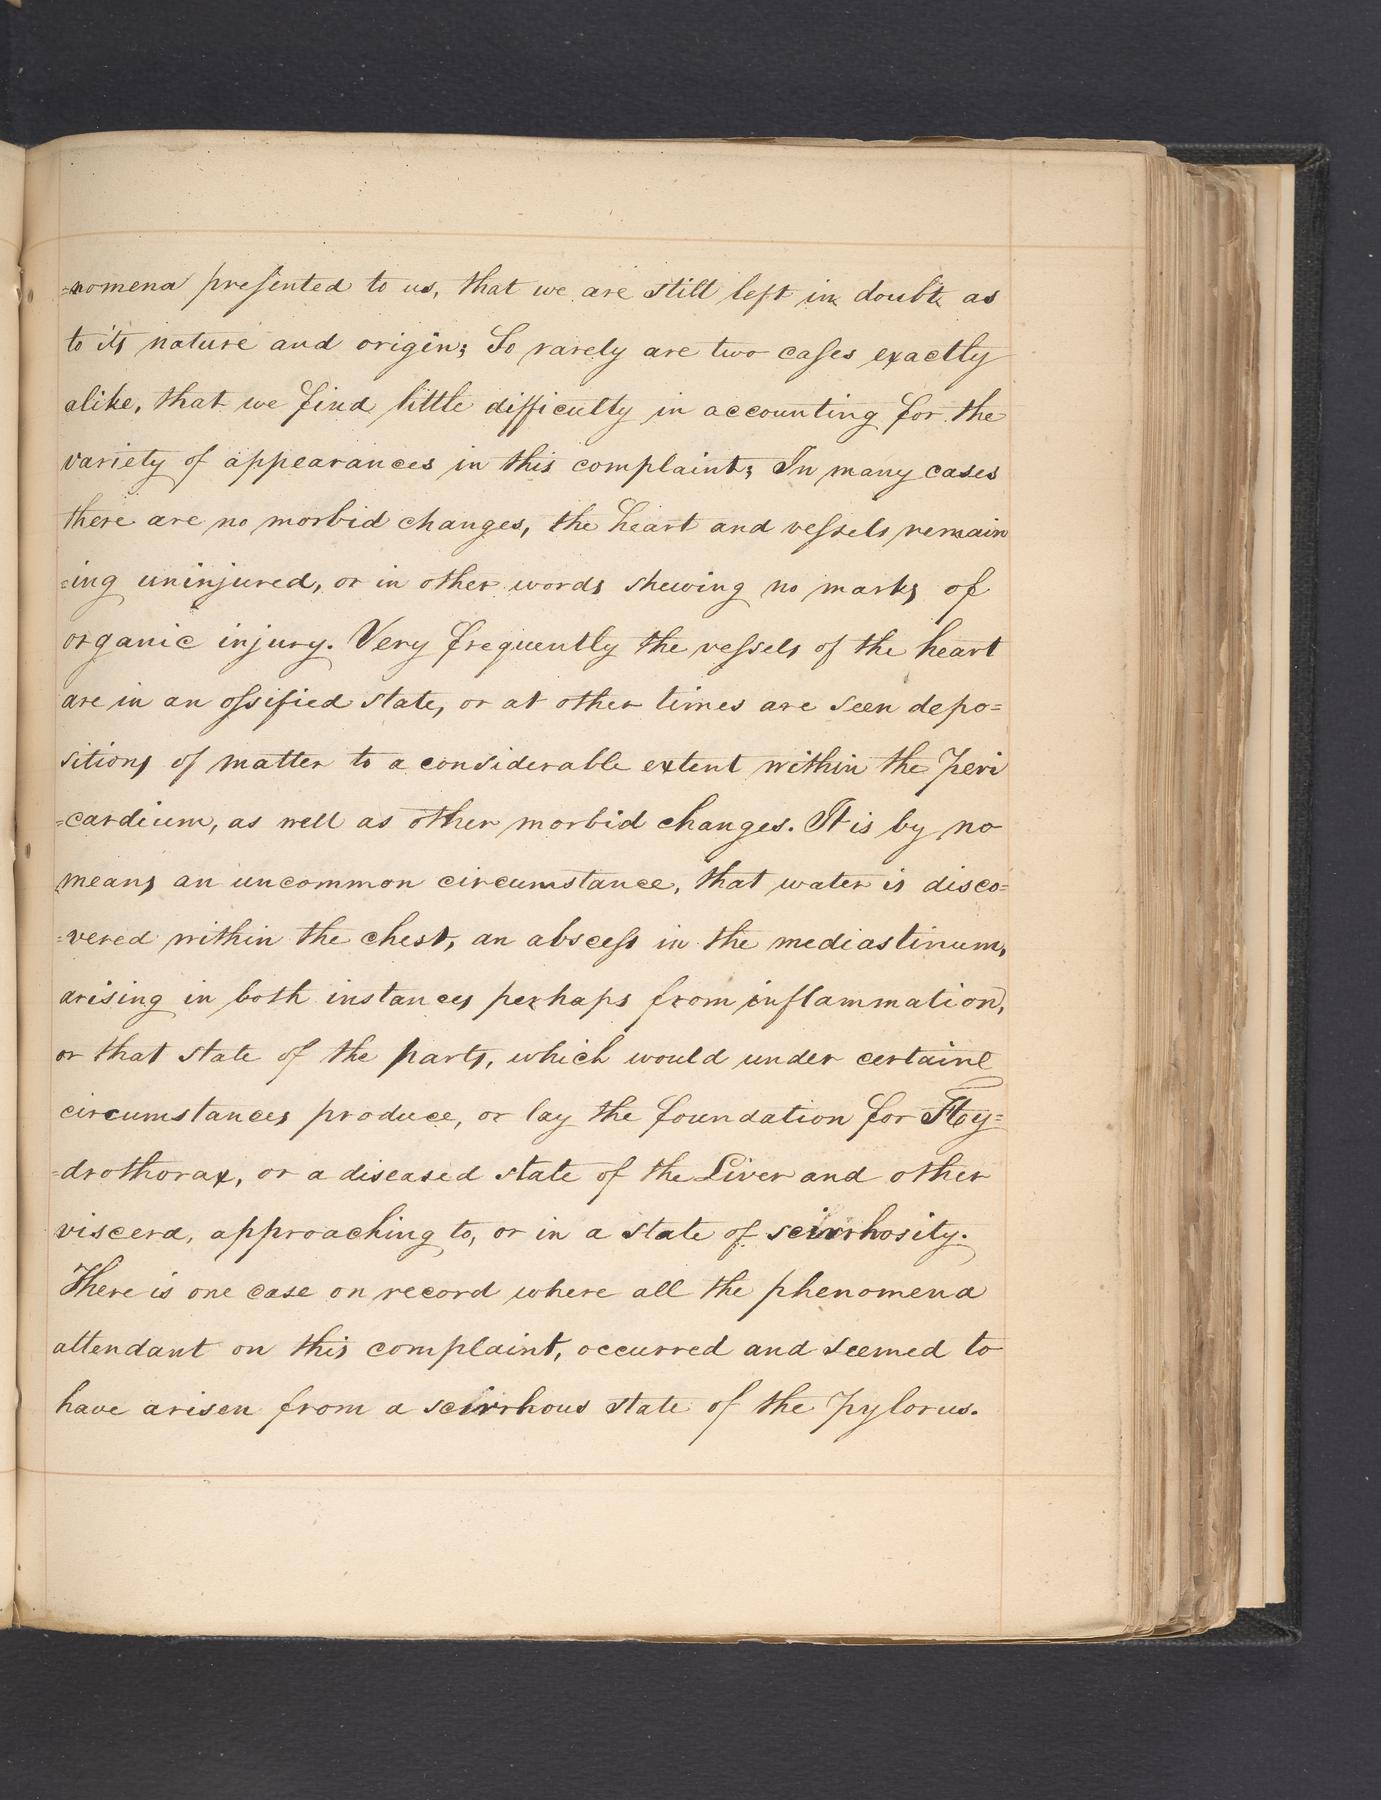 =nomena presented to us, that we are still left in doubt as
to its nature and origin; So rarely are two cases exactly
alike, that we find little difficulty in accounting for the
variety of appearances in this complaint; In many cases
there are no morbid changes, the heart and vessels remain
=ing uninjured, or in other words shewing no marks of
organic injury. Very frequently the vessels of the heart
are in an ossified state, or at other times are seen depo=
sitions of matter to a considerable extent within the Peri
=cardium, as well as other morbid changes. It is by no
means an uncommon circumstance, that water is disco=
=vered within the chest, an abscess in the mediastinum,
arising in both instances perhaps from inflammation,
or that state of the parts, which would under certain
circumstances produce, or lay the foundation for Hy=
=drothorax, or a diseased state of the Liver and other
viscera, approaching to, or in a state of scirrhosity.
There is one case on record where all the phenomena
attendant on this complaint, occurred and seemed to
have arisen from a scirrhous state of the Pylorus.